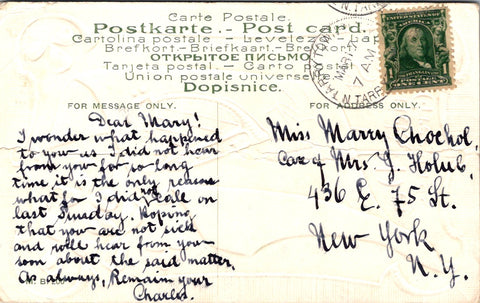 Carte Postale.
Postkarte. - Post card.
Cartolina postale - Levelez
Brefkort.-Briefkaart.-Brevkort
ОТКРЫТОЕ ПИСЬМО
Tarjeta postal.- Carto p
Union postale universe
Dopisnice.
UNITED STATES OF AMERICA
1
TARRYTOWN
MAR
7 AM
N.TARR
FOR MESSAGE ONLY.
Dear Mary!
I wonder what happened
to you as I did not hear
from you for so long
time it is the only reason
what for I did not call on
last Sunday. Hoping
that you are not sick
and will hear from you
soon about the said matter.
As always, Remain your
Charles.
M. B.
FOR ADDRESS ONLY.
Miss Marry Chochol,
Car of Mrs. J. Holub,
436 E. 75 St.
New York
N.Y.